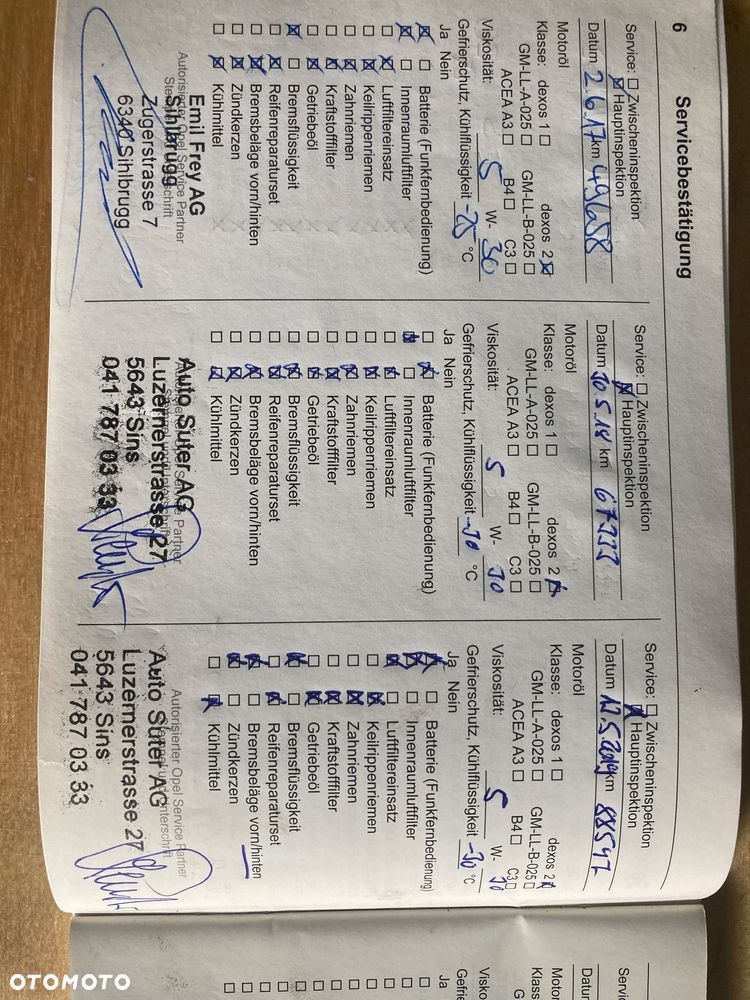 6 Servicebestätigung
Service: ☐ Zwischeninspektion
☒ Hauptinspektion
Datum 2.6.17 km 49658
Motoröl
Klasse: dexos 1 ☐ dexos 2 ☒
GM-LL-A-025 ☐ GM-LL-B-025 ☐
ACEA A3 ☐ B4 ☐ C3 ☐
Viskosität: 5 W- 30
Gefrierschutz, Kühlflüssigkeit -25 °C
Ja Nein
☒ ☐ Batterie (Funkfernbedienung)
☒ ☐ Innenraumluftfilter
☐ ☒ Luftfiltereinsatz
☐ ☒ Keilrippenriemen
☐ ☒ Zahnriemen
☐ ☒ Kraftstofffilter
☐ ☒ Getriebeöl
☒ ☐ Bremsflüssigkeit
☐ ☒ Reifenreparaturset
☐ ☒ Bremsbeläge vorn/hinten
☐ ☒ Zündkerzen
☐ ☒ Kühlmittel
Autorisierter Opel Service Partner
Emil Frey AG
Sihlbrugg
Zugerstrasse 7
6340 Sihlbrugg
Service: ☐ Zwischeninspektion
☒ Hauptinspektion
Datum 30.5.18 km
Motoröl
Klasse: dexos 1 ☐ dexos 2 ☒
GM-LL-A-025 ☐ GM-LL-B-025 ☐
ACEA A3 ☐ B4 ☐ C3 ☐
Viskosität: 5 W- 30
Gefrierschutz, Kühlflüssigkeit -30 °C
Ja Nein
☐ ☒ Batterie (Funkfernbedienung)
☒ ☐ Innenraumluftfilter
☐ ☒ Luftfiltereinsatz
☐ ☒ Keilrippenriemen
☐ ☒ Zahnriemen
☐ ☒ Kraftstofffilter
☐ ☒ Getriebeöl
☐ ☒ Bremsflüssigkeit
☐ ☒ Reifenreparaturset
☐ ☒ Bremsbeläge vorn/hinten
☐ ☒ Zündkerzen
☐ ☒ Kühlmittel
Auto Suter AG
Luzernerstrasse 27
5643 Sins
041 787 03 33
Service: ☐ Zwischeninspektion
☒ Hauptinspektion
Datum 17.5.2019 km 88547
Motoröl
Klasse: dexos 1 ☐ dexos 2 ☒
GM-LL-A-025 ☐ GM-LL-B-025 ☐
ACEA A3 ☐ B4 ☐ C3 ☐
Viskosität: 5 W- 30
Gefrierschutz, Kühlflüssigkeit -30 °C
Ja Nein
☒ ☐ Batterie (Funkfernbedienung)
☒ ☐ Innenraumluftfilter
☒ ☐ Luftfiltereinsatz
☐ ☒ Keilrippenriemen
☐ ☒ Zahnriemen
☐ ☒ Kraftstofffilter
☐ ☒ Getriebeöl
☒ ☐ Bremsflüssigkeit
☐ ☒ Reifenreparaturset
☒ ☐ Bremsbeläge vorn/hinten
☒ ☐ Zündkerzen
☐ ☒ Kühlmittel
Autorisierter Opel Service Partner
Auto Suter AG
Luzernerstrasse 27
5643 Sins
041 787 03 33
OTOMOTO